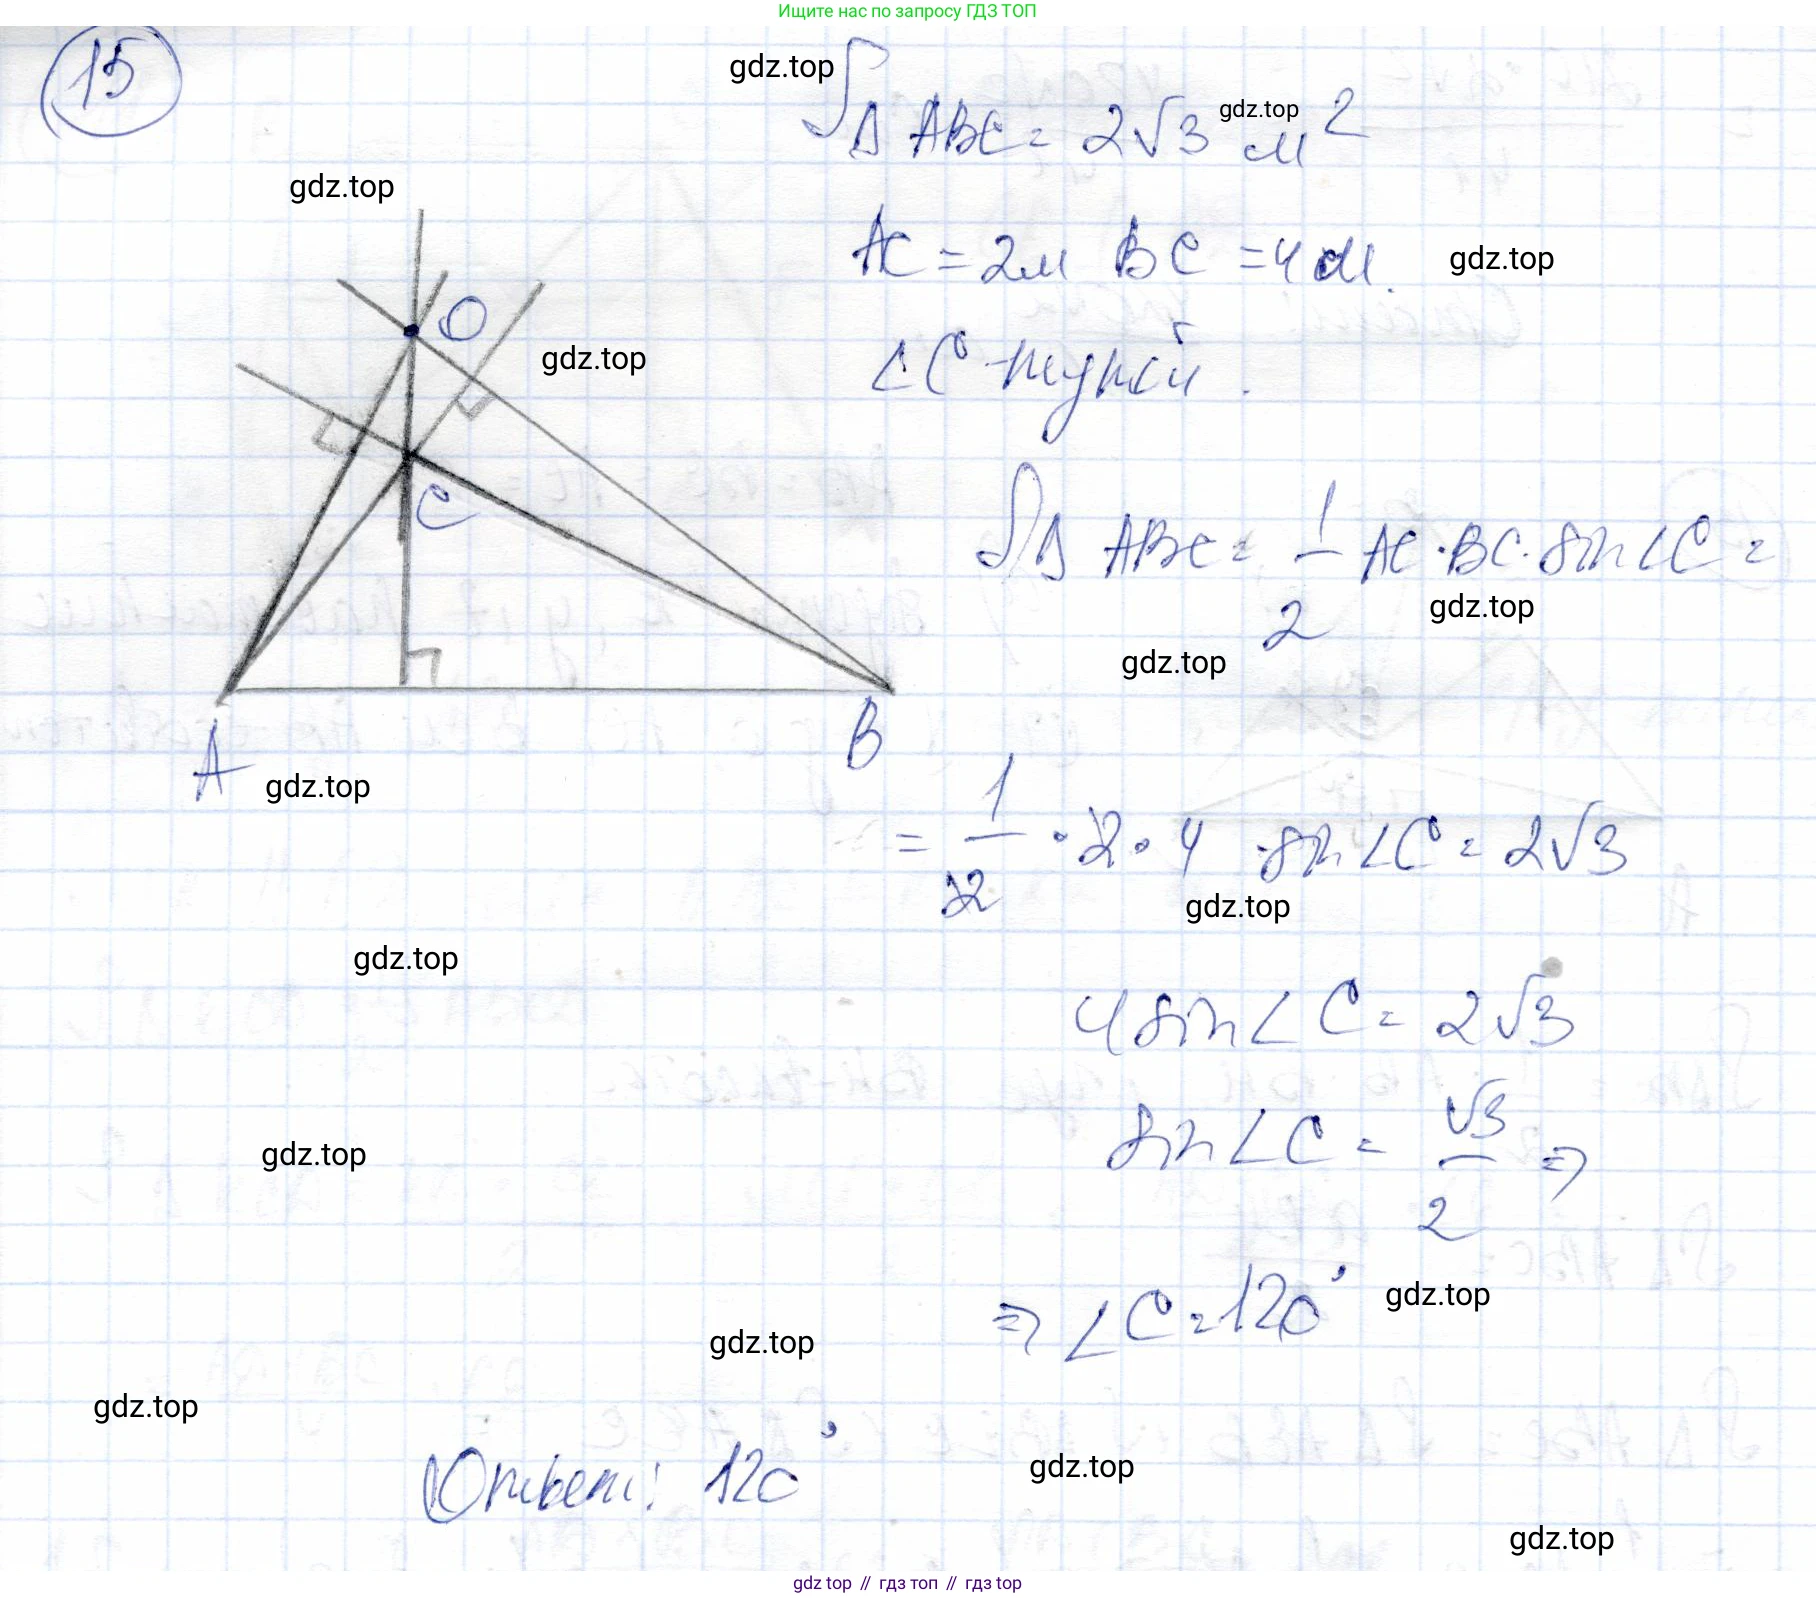 Ищите нас по запросу ГДЗ ТОП
15
gdz.top
S△ ABC = 2√3 м²
gdz.top
gdz.top
AC = 2м BC = 4м.
gdz.top
O
gdz.top
∠C - тупой.
C
S△ ABC = 1/2 AC · BC · sin∠C =
gdz.top
gdz.top
A
B
gdz.top
= 1/2 · 2 · 4 · sin∠C = 2√3
gdz.top
gdz.top
4 sin∠C = 2√3
gdz.top
sin∠C = √3/2 ⇒
⇒ ∠C = 120°
gdz.top
gdz.top
gdz.top
Ответ: 120°
gdz.top
gdz.top
gdz top // гдз топ // гдз top